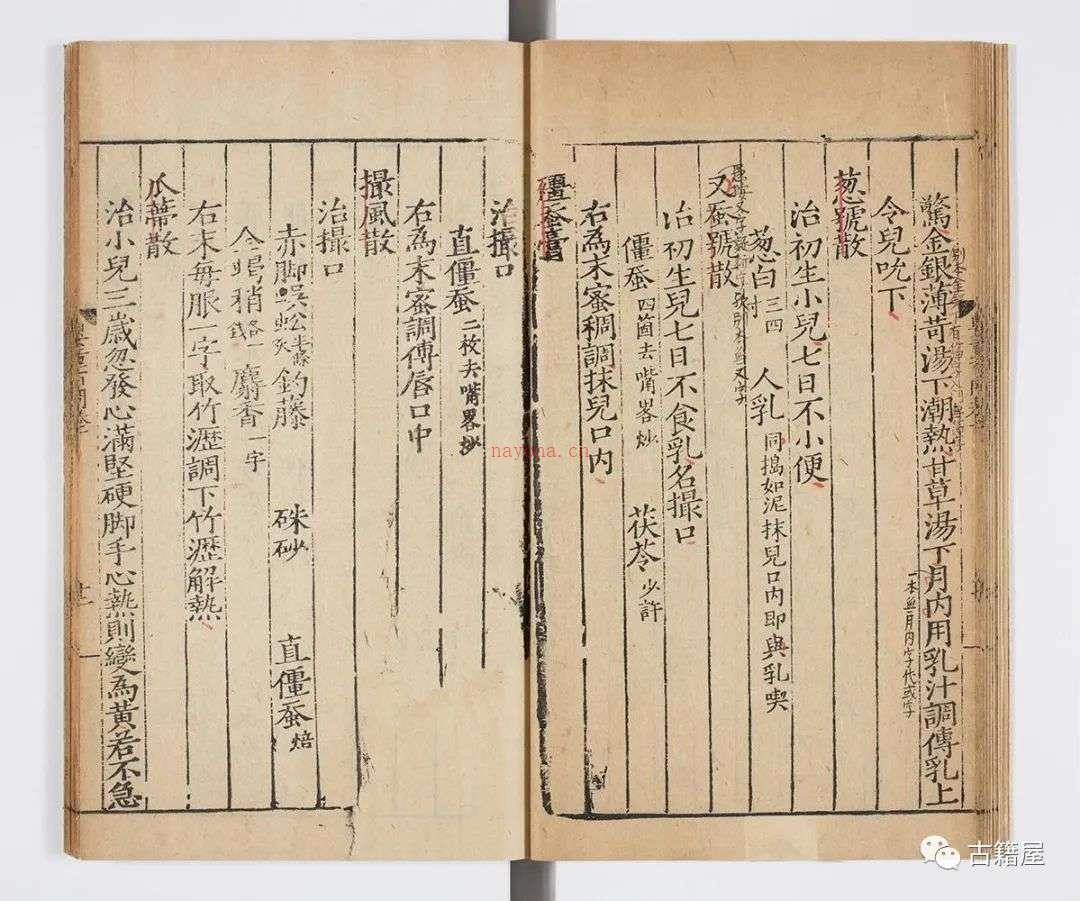 驚金銀薄苛湯下潮熱甘草湯下月内用乳汁調傅乳上
一本無月内字代或字
令兒吮下
葱號散
治初生小兒七日不小便
葱白三四寸 人乳同搗如泥抹兒口内即與乳喫
又蚕號散
治初生兒七日不食乳名撮口
僵蚕四箇去嘴畧炒 茯苓少許
右為末蜜稠調抹兒口内
疆蚕膏
治撮口
直僵蚕二枚去嘴畧炒
右為末蜜調傅唇口中
撮風散
治撮口
赤脚吳蚣半條炙 釣藤 硃砂 直僵蚕焙
全蝎稍 麝香一字
右末每服一字取竹瀝調下竹瀝解熱
瓜蒂散
治小兒三歲忽發心滿堅硬脚手心熱則變為黄若不急
廿一
nayona.cn
古籍屋